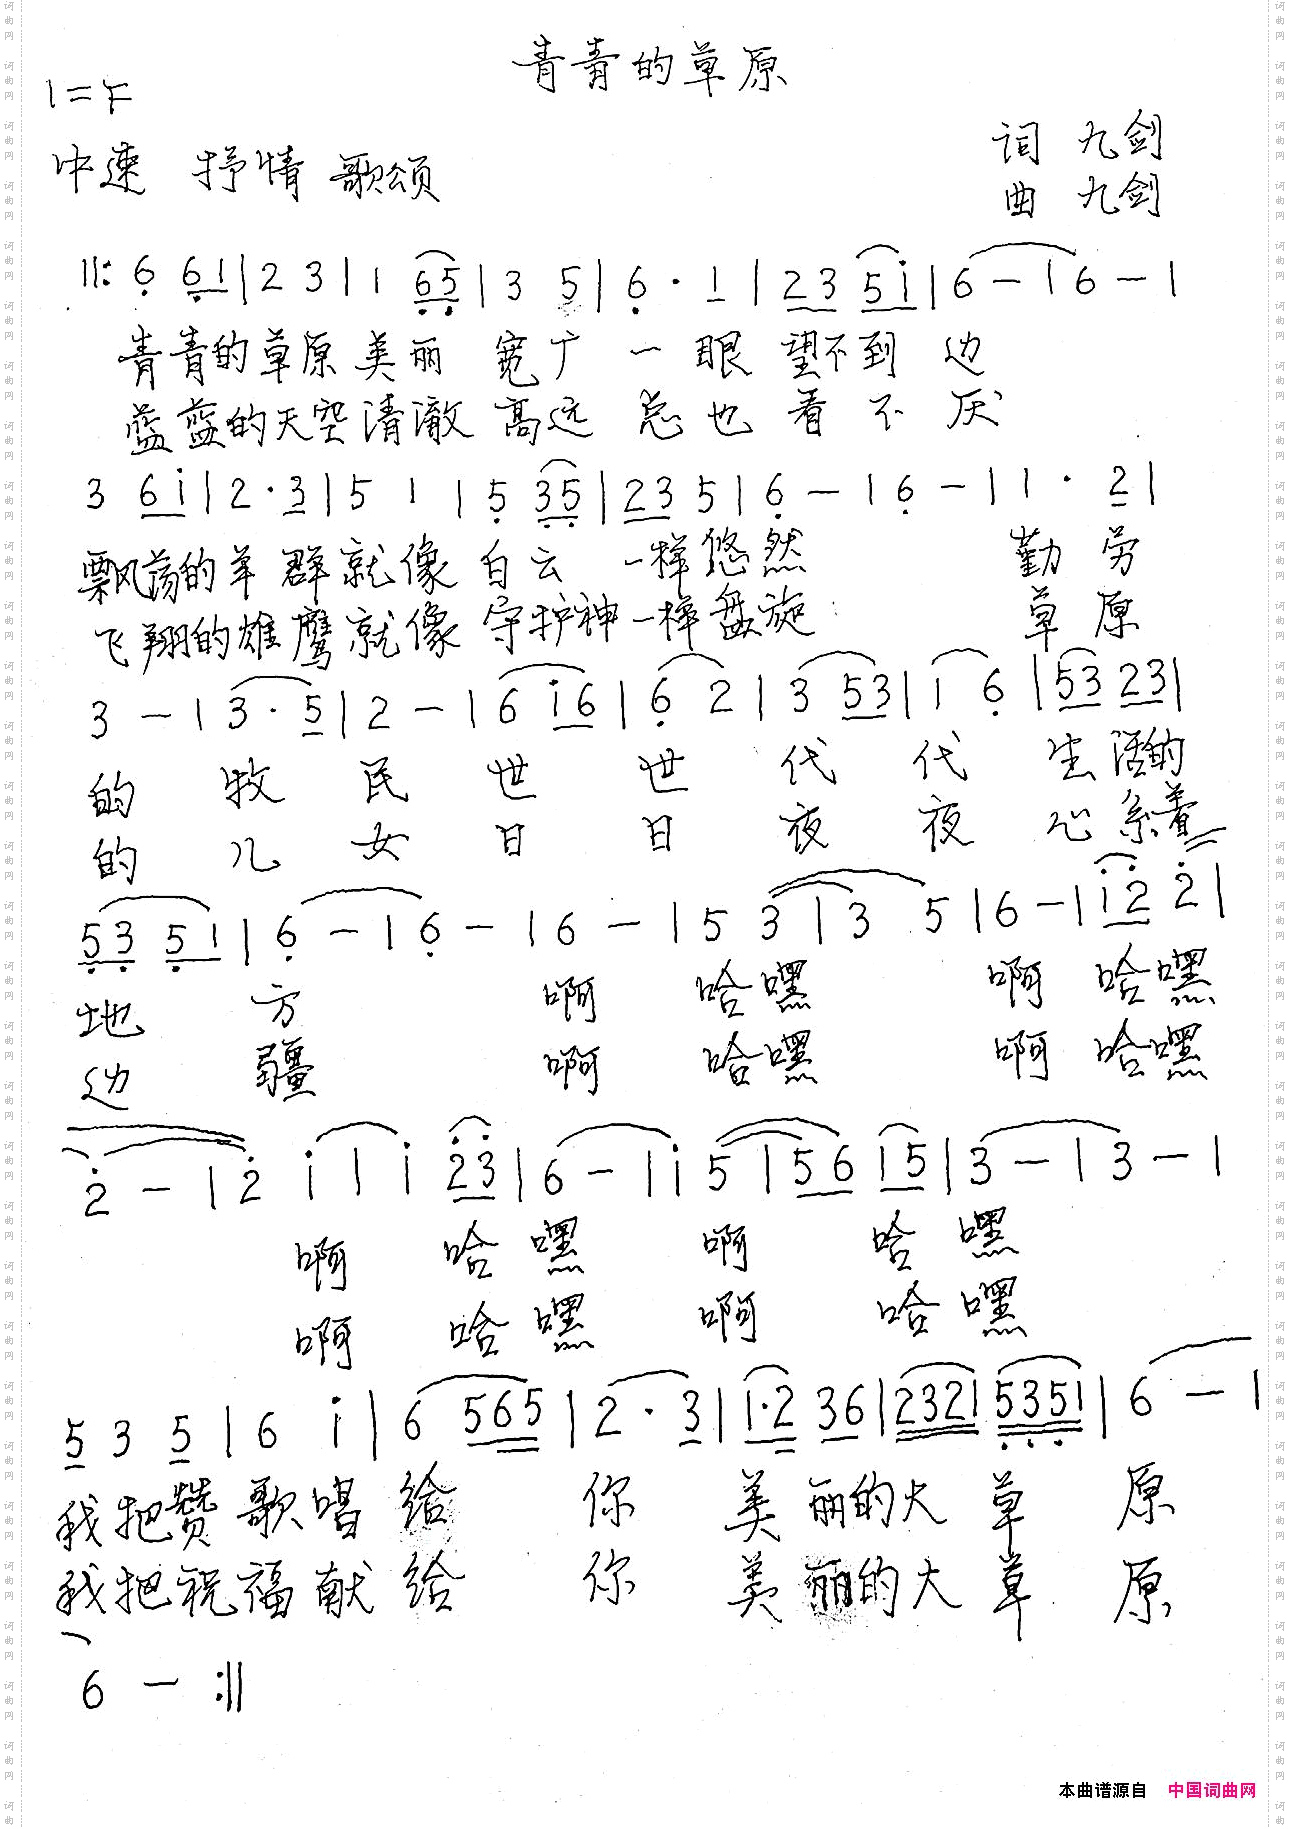 青青的草原
1=F
中速 抒情 歌颂
词 九剑
曲 九剑
||: 6 61 | 2 3 | 1 65 | 3 5 | 6 · 1 | 23 5i | 6 — | 6 — |
青青的草原 美丽 宽广 一眼 望不到 边
蓝蓝的天空清澈 高远 总也 看不厌
3 6i | 2 · 3 | 5 1 | 5 35 | 23 5 | 6 — | 6 — | 1 · 2 |
飘荡的羊 群就像 白云 一样悠然 勤劳
飞翔的雄鹰就像 守护神一样盘旋 草原
3 — | 3 · 5 | 2 — | 6 i6 | 6 2 | 3 53 | 1 6 | 53 23 |
的 牧 民 世 世 代 代 生活的
的 儿 女 日 日 夜 夜 心系着
53 51 | 6 — | 6 — | 6 — | 5 3 | 3 5 | 6 — | i2 2 |
地 方 啊 哈嘿 啊 哈嘿
边 疆 啊 哈嘿 啊 哈嘿
2 — | 2 i | i 23 | 6 — | i 5 | 56 15 | 3 — | 3 — |
啊 哈 嘿 啊 哈 嘿
啊 哈 嘿 啊 哈 嘿
5 3 5 | 6 i | 6 565 | 2 · 3 | 1·2 36 | 2321 5351 | 6 — |
我把赞歌唱 给 你 美 丽的大 草 原
我把祝福献 给 你 美 丽的大 草 原
6 — :||
本曲谱源自 中国词曲网